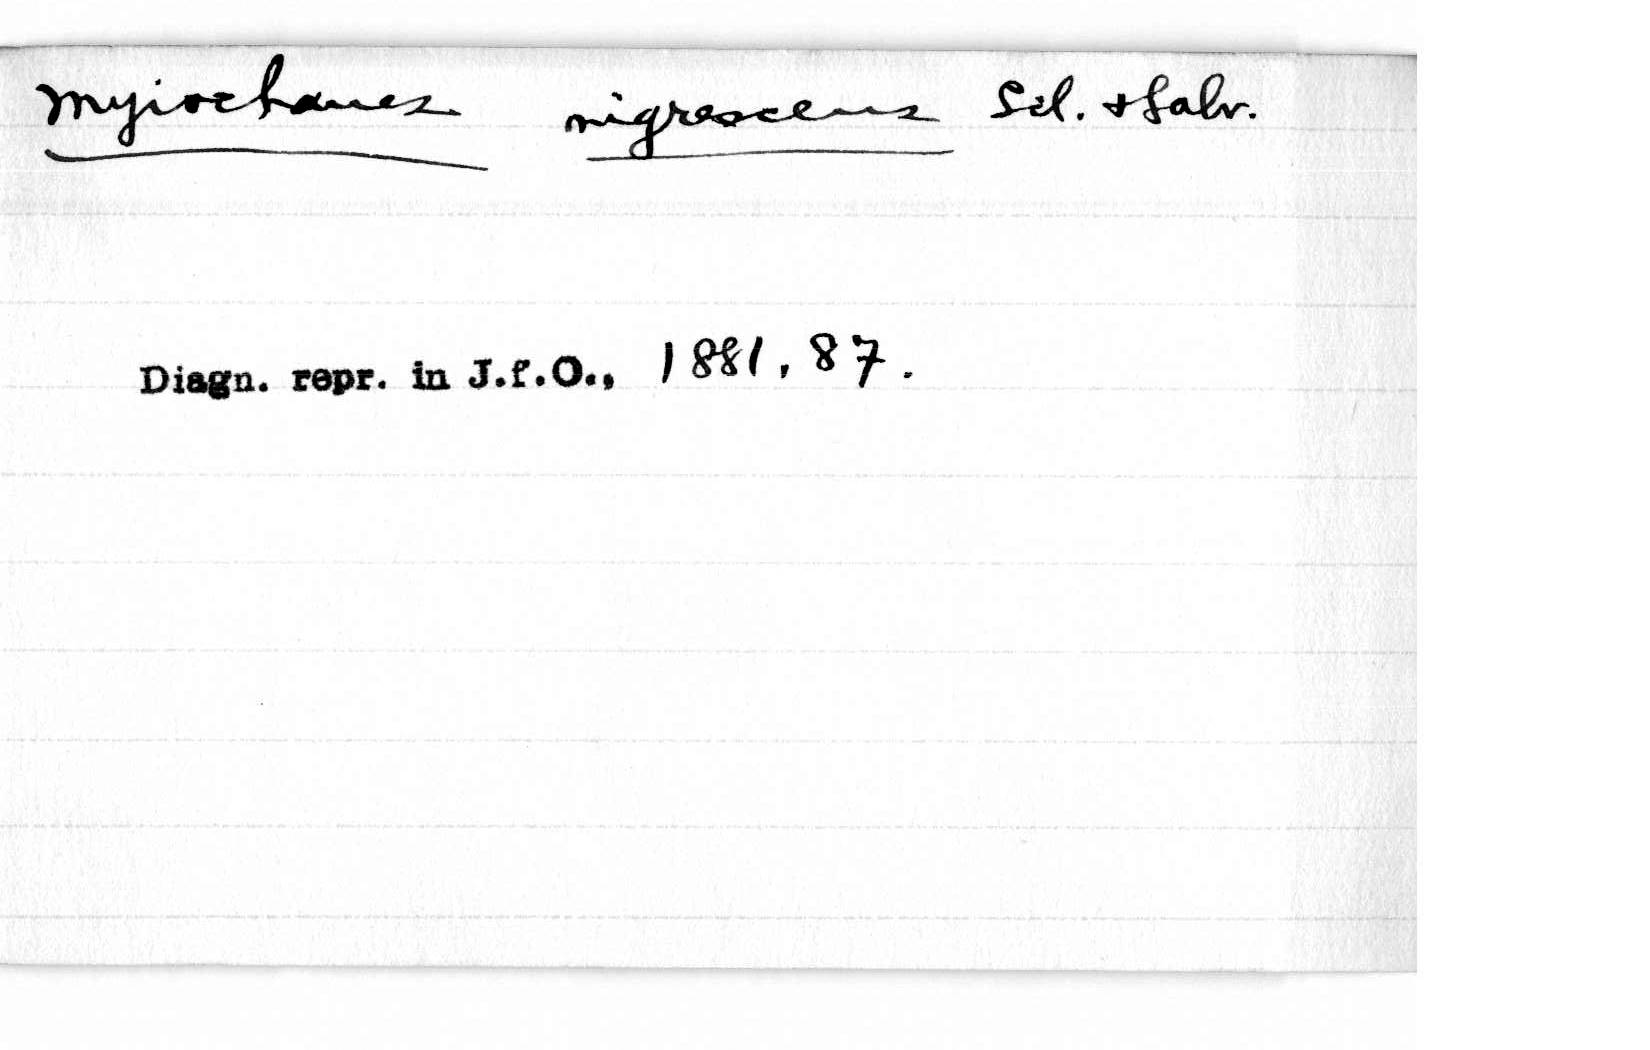 Myiochanes nigrescens Scl. & Salv.
Diagn. repr. in J.f.O., 1881, 87.